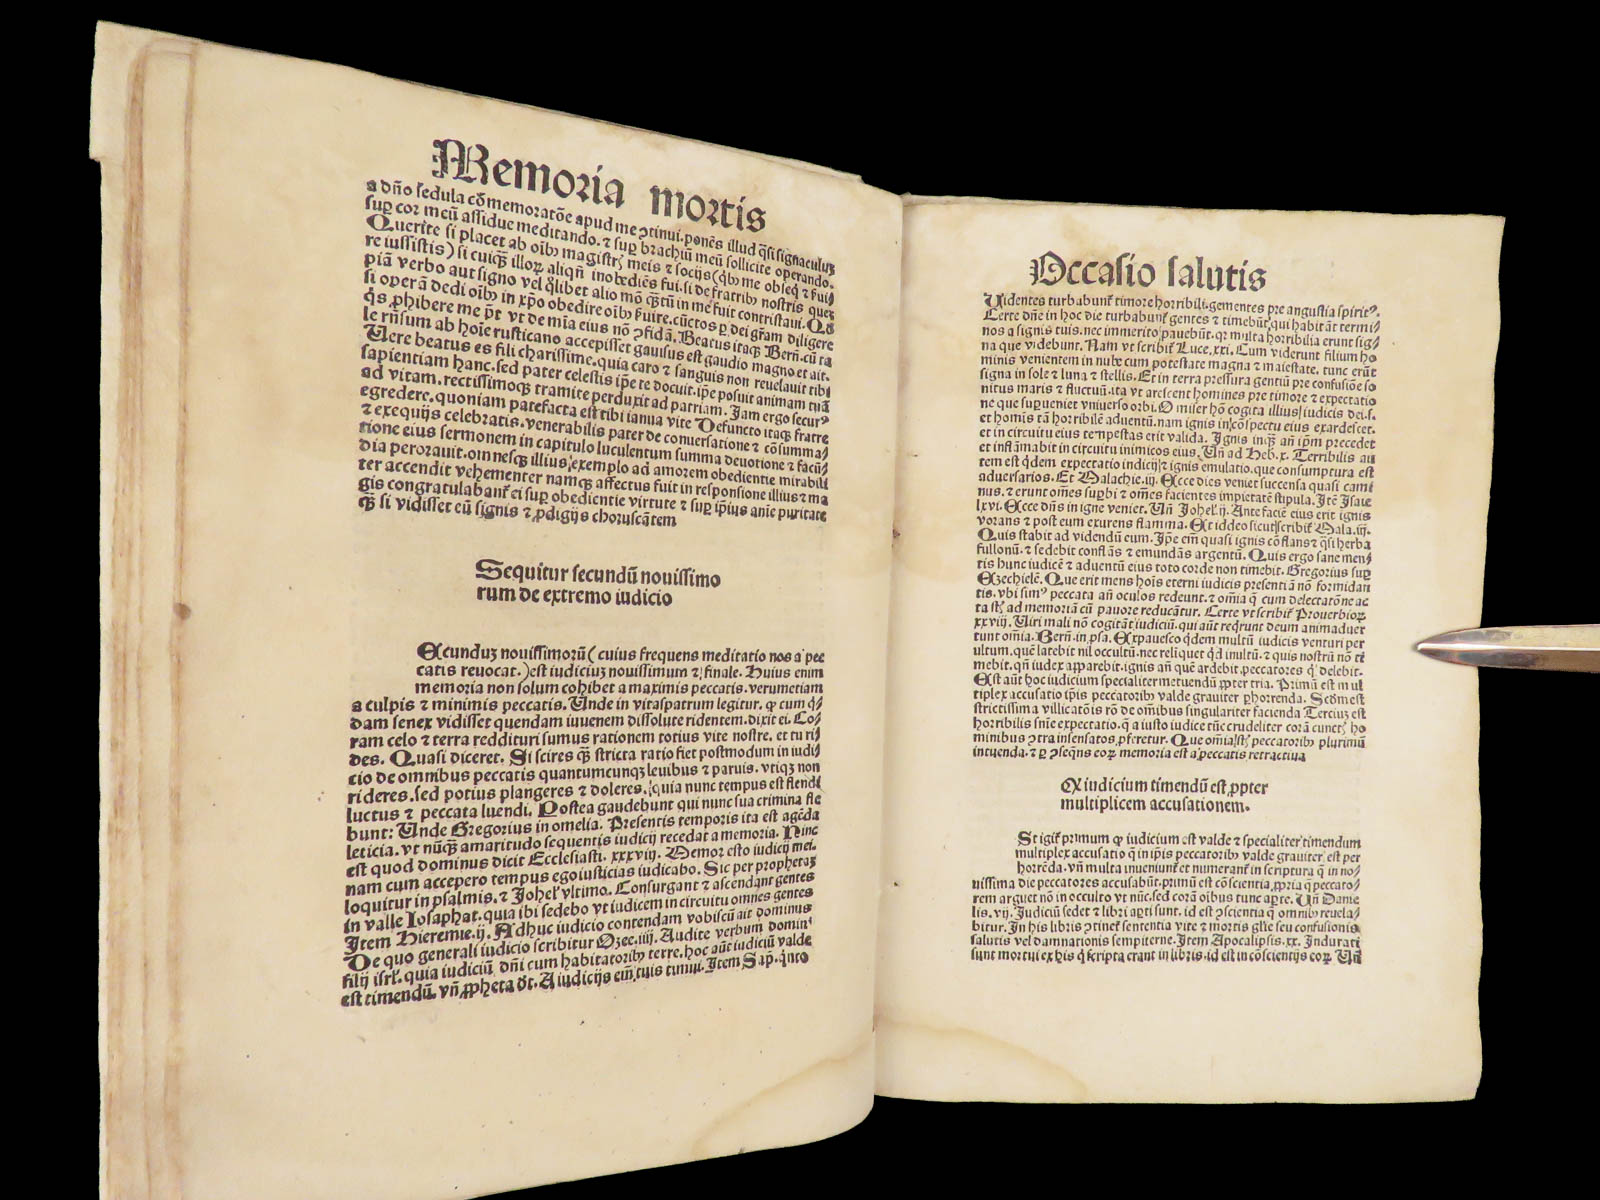 Memoria mortis
a dño sedula cõmemoratõe apud me ꝯtinui. ponẽs illud q̃si signaculuꝫ
sup cor meũ assidue meditando. ⁊ sup brachiũ meũ sollicite operando.
Querite si placet ab oĩbꝫ magistris meis ⁊ socijs (qbꝫ me obseq̃ ⁊ ẜui⸗
re iussistis) si cuiqꝫ illoꝝ aliqñ inobediẽs fui. si de fratribꝫ nostris queꝫ
piã verbo aut signo vel qlibet alio mõ qꝫtũ in me fuit contristaui. Qð
si operã dedi oĩbꝫ in xp̃o obedire oĩbꝫ ẜuire. cũctos ꝑ dei gr̃am diligere
q̃s ꝓhibere me põt vt de mĩa eius nõ ꝯfidã. Beatus itaqꝫ Berñ. cũ ta
le rñsum ab hoĩe rusticano accepisset gauisus est gaudio magno et ait.
Uere beatus es fili charissime. quia caro ⁊ sanguis non reuelauit tibi
sapientiam hanc. sed pater celestis ip̃e te docuit. ip̃e posuit animam tuã
ad vitam. rectissimoqꝫ tramite perduxit ad patriam. Jam ergo securꝰ
egredere. quoniam patefacta est tibi ianua vite Defuncto itaqꝫ fratre
⁊ exequijs celebratis. venerabilis pater de conuersatione ⁊ cõsumma⸗
tione eius sermonem in capitulo luculentum summa deuotione ⁊ facũ⸗
dia perorauit. omnesqꝫ illius exemplo ad amorem obedientie mirabili
ter accendit vehementer namqꝫ affectus fuit in responsione illius ⁊ ma
gis congratulabant̃ ei sup obedientie virtute ⁊ sup ip̃ius anĩe puritate
qꝫ si vidisset eũ signis ⁊ ꝓdigijs choruscãtem
Sequitur secundũ nouissimo
rum de extremo iudicio
Ecunduꝫ nouissimorũ (cuius frequens meditatio nos a pec
catis reuocat.) est iudiciuꝫ nouissimum ⁊ finale. Huius enim
memoria non solum cohibet a maximis peccatis. verumetiam
a culpis ⁊ minimis peccatis. Unde in vitaspatrum legitur. ꝙ cum q̃⸗
dam senex vidisset quendam iuuenem dissolute ridentem. dixit ei. Co⸗
ram celo ⁊ terra reddituri sumus rationem totius vite nostre. et tu ri⸗
des. Quasi diceret. Si scires qꝫ stricta ratio fiet postmodum in iudi⸗
cio de omnibus peccatis quantumcunqꝫ leuibus ⁊ paruis. vtiqꝫ non
rideres. sed potius plangeres ⁊ doleres. quia nunc tempus est flendi
luctus ⁊ peccata luendi. Postea gaudebunt qui nunc sua crimina fle
bunt: Unde Gregorius in omelia. Presentis temporis ita est agẽda
leticia. vt nũqꝫ amaritudo sequentis iudicij recedat a memoria. Hinc
est quod dominus dicit Ecclesiasti. xxxviij. Memor esto iudicij mei.
nam cum accepero tempus ego iusticias iudicabo. Sic per prophetaꝫ
loquitur in psalmis. ⁊ Johel̃ vltimo. Consurgant ⁊ ascendant gentes
in valle Josaphat. quia ibi sedebo vt iudicem in circuitu omnes gentes
Item Hieremie. ij. Adhuc iudicio contendam vobiscũ ait dominus
De quo generali iudicio scribitur Ozee. iiij. Audite verbum dominꝰ
filij isrl̃. quia iudiciũ dñi cum habitatoribꝫ terre. hoc aũt iudiciũ valde
est timendũ. vñ ꝓpheta dt̃. A iudicijs eñ tuis timui. Item Sap. q̃nto
Occasio salutis
Uidentes turbabunt̃ timore horribili. gementes pre angustia spiritꝰ.
Certe dñe in hoc die turbabunt̃ gentes ⁊ timebũt qui habitãt termi⸗
nos a signis tuis. nec immerito pauebũt. qꝛ multa horribilia erunt sig⸗
na que videbunt. Nam vt scribit̃ Luce. xxi. Cum viderunt filium ho
minis venientem in nube cum potestate magna ⁊ maiestate. tunc erũt
signa in sole ⁊ luna ⁊ stellis. Et in terra pressura gentiũ pre confusiõe so
nitus maris ⁊ fluctuũ. ita vt arescent homines pre timore ⁊ expectatio
ne que superueniet vniuerso orbi. O miser hõ cogita illius iudicis dei. s.
et homĩs tã horribilẽ aduentũ. nam ignis in cõspectu eius exardescet.
et in circuitu eius tempestas erit valida. Ignis inqꝫ añ ip̃m precedet
et inflãmabit in circuitu inimicos eius. Uñ ad Heb. x. Terribilis au
tem est q̃dem expectatio indicij ⁊ ignis emulatio. que consumptura est
aduersarios. Et Malachie. iij. Ecce dies veniet succensa quasi cami
nus. ⁊ erunt om̃es supbi ⁊ om̃es facientes impietatẽ stipula. Itẽ Isaie
lxvi. Ecce dñs in igne veniet. Uñ Johel̃. ij. Ante faciẽ eius erit ignis
vorans ⁊ post eum exurens flamma. Et iddeo sicut scribit̃ Mala. iij.
Quis stabit ad videndũ eum. Ip̃e em̃ quasi ignis cõflans ⁊ q̃si herba
fullonũ. ⁊ sedebit conflãs ⁊ emundãs argentũ. Quis ergo sane men⸗
tis hunc iudicẽ ⁊ aduentũ eius toto corde non timebit. Gregorius sup
Ezechielẽ. Que erit mens hoĩs eterni iudicis presentiã nõ formidan
tis. vbi simꝰ peccata añ oculos redeunt. ⁊ om̃ia q̃ cum delectatõne ac
ta st̃ ad memoriã cũ pauore reducãtur. Certe vt scribit̃ Prouerbioꝝ
xxviij. Uiri mali nõ cogitãt iudiciũ. qui aũt reqrunt deum animaduer
tunt om̃ia. Berñ. in. psa. Expauesco q̃dem multũ iudicis venturi per
ultum. quẽ latebit nil occultũ. nec relinquet qd inultũ. ⁊ quis nostrũ nõ ti
mebit. qñ iudex apparebit. ignis añ quẽ ardebit. peccatores q̃ delebit.
Est aũt hoc iudiciũ specialiter metuendũ ꝓpter tria. Primũ est mul
tiplex accusatio ip̃is peccatoribꝫ valde grauiter ꝑhorrenda. Scd̃m est
strictissima villicatõis rõ de omnibus singulariter facienda Terciuꝫ est
horribilis sñie expectatio. q̃ a iusto iudice tũc crudeliter corã cunctis ho
minibus ꝯtra insensatos. pferetur. Que om̃ia st̃ peccatoribꝫ plurimũ
intuenda. ⁊ ꝑ ꝯseq̃ns eoꝝ memoria est a peccatis retractiua
Ex iudicium timendũ est ꝓpter
multiplicem accusationem.
St igit̃ primum ꝙ iudicium est valde ⁊ specialiter timendum
multiplex accusatio q̃ ip̃is peccatoribꝫ valde grauiter est per
horrẽda. vñ multa inueniunt̃ em̃ narrant̃ in scriptura q̃ in no⸗
uissima die peccatores accusabũt. primũ est cõscientia ꝓpria q̃ peccato⸗
rem arguet nõ in occulto vt nũc. sed corã oĩbus tunc apte. Uñ Danie
lis. vij. Judiciũ sedet ⁊ libri apti sunt. id est ꝯscientia q̃ omnibꝫ reuela⸗
bitur. In his libris ꝯtinet̃ sententia vite ⁊ mortis gl̃ie seu confusionis
salutis vel damnationis sempiterne. Item Apocalipsis. xx. Judicati
sunt mortui ex his q̃ scripta erant in libris. id est in cõscientijs eoꝝ Uñ